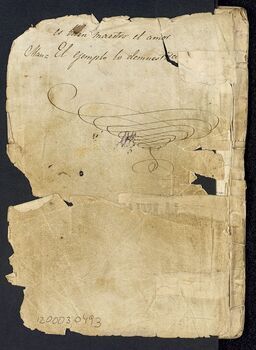 es buen maestro el amor
Man.= El ejemplo lo demuestra
1200030493